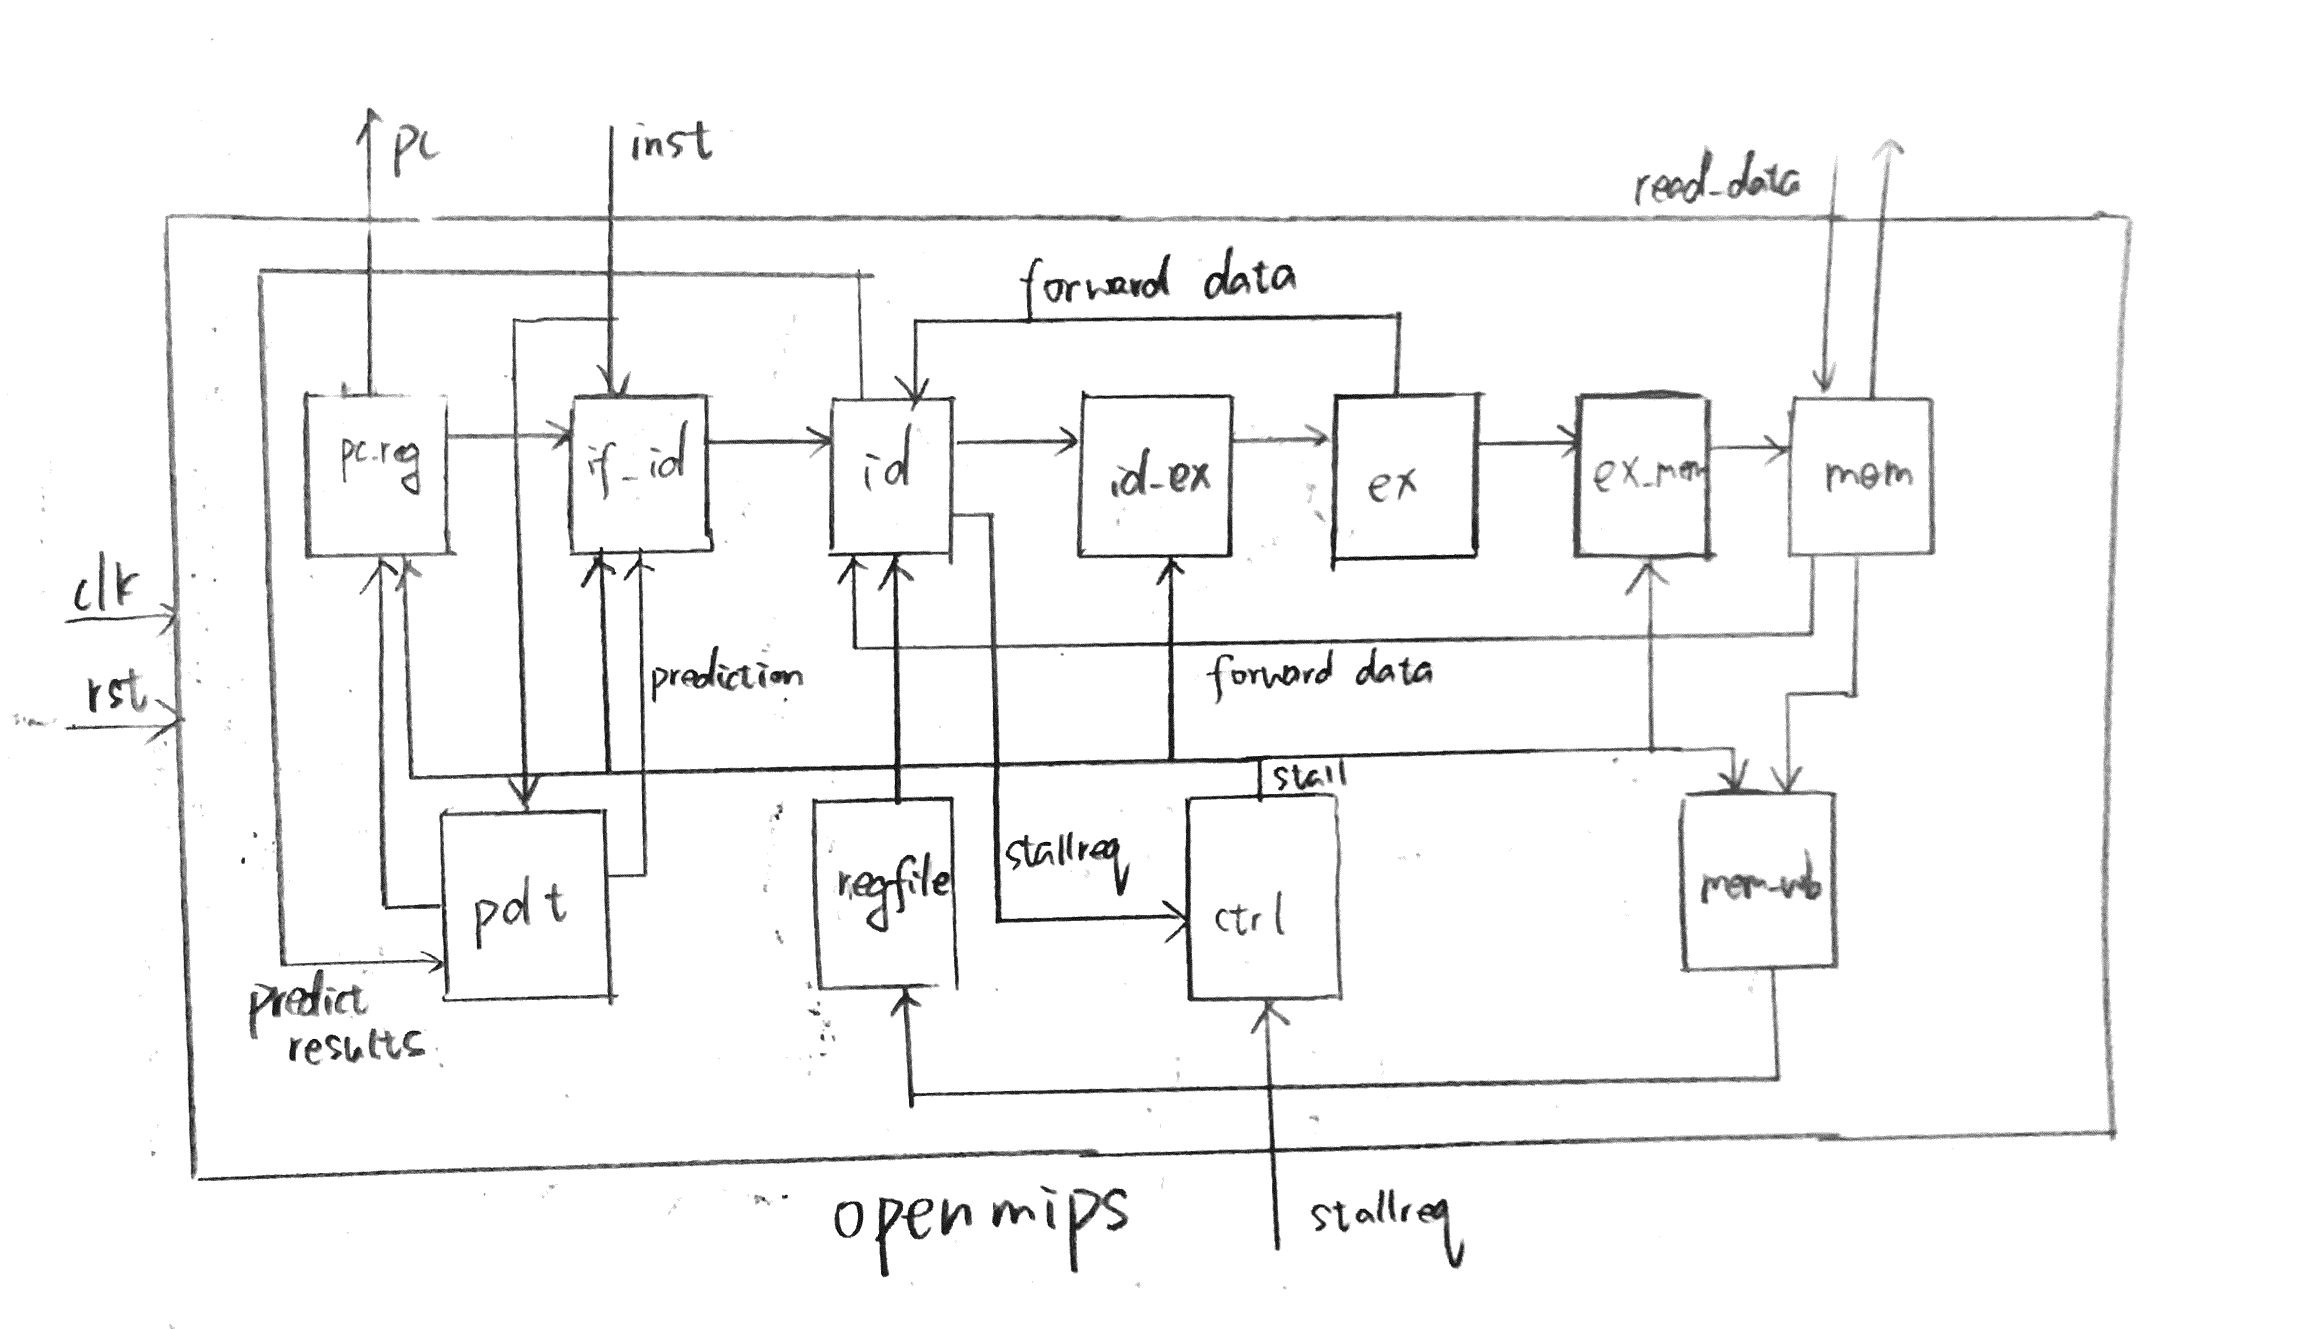 pc
inst
read_data
forward data
pc_reg
if_id
id
id_ex
ex
ex_mem
mem
clk
rst
prediction
forward data
stall
stallreq
pdt
regfile
ctrl
mem_wb
predict
results
openmips
stallreq